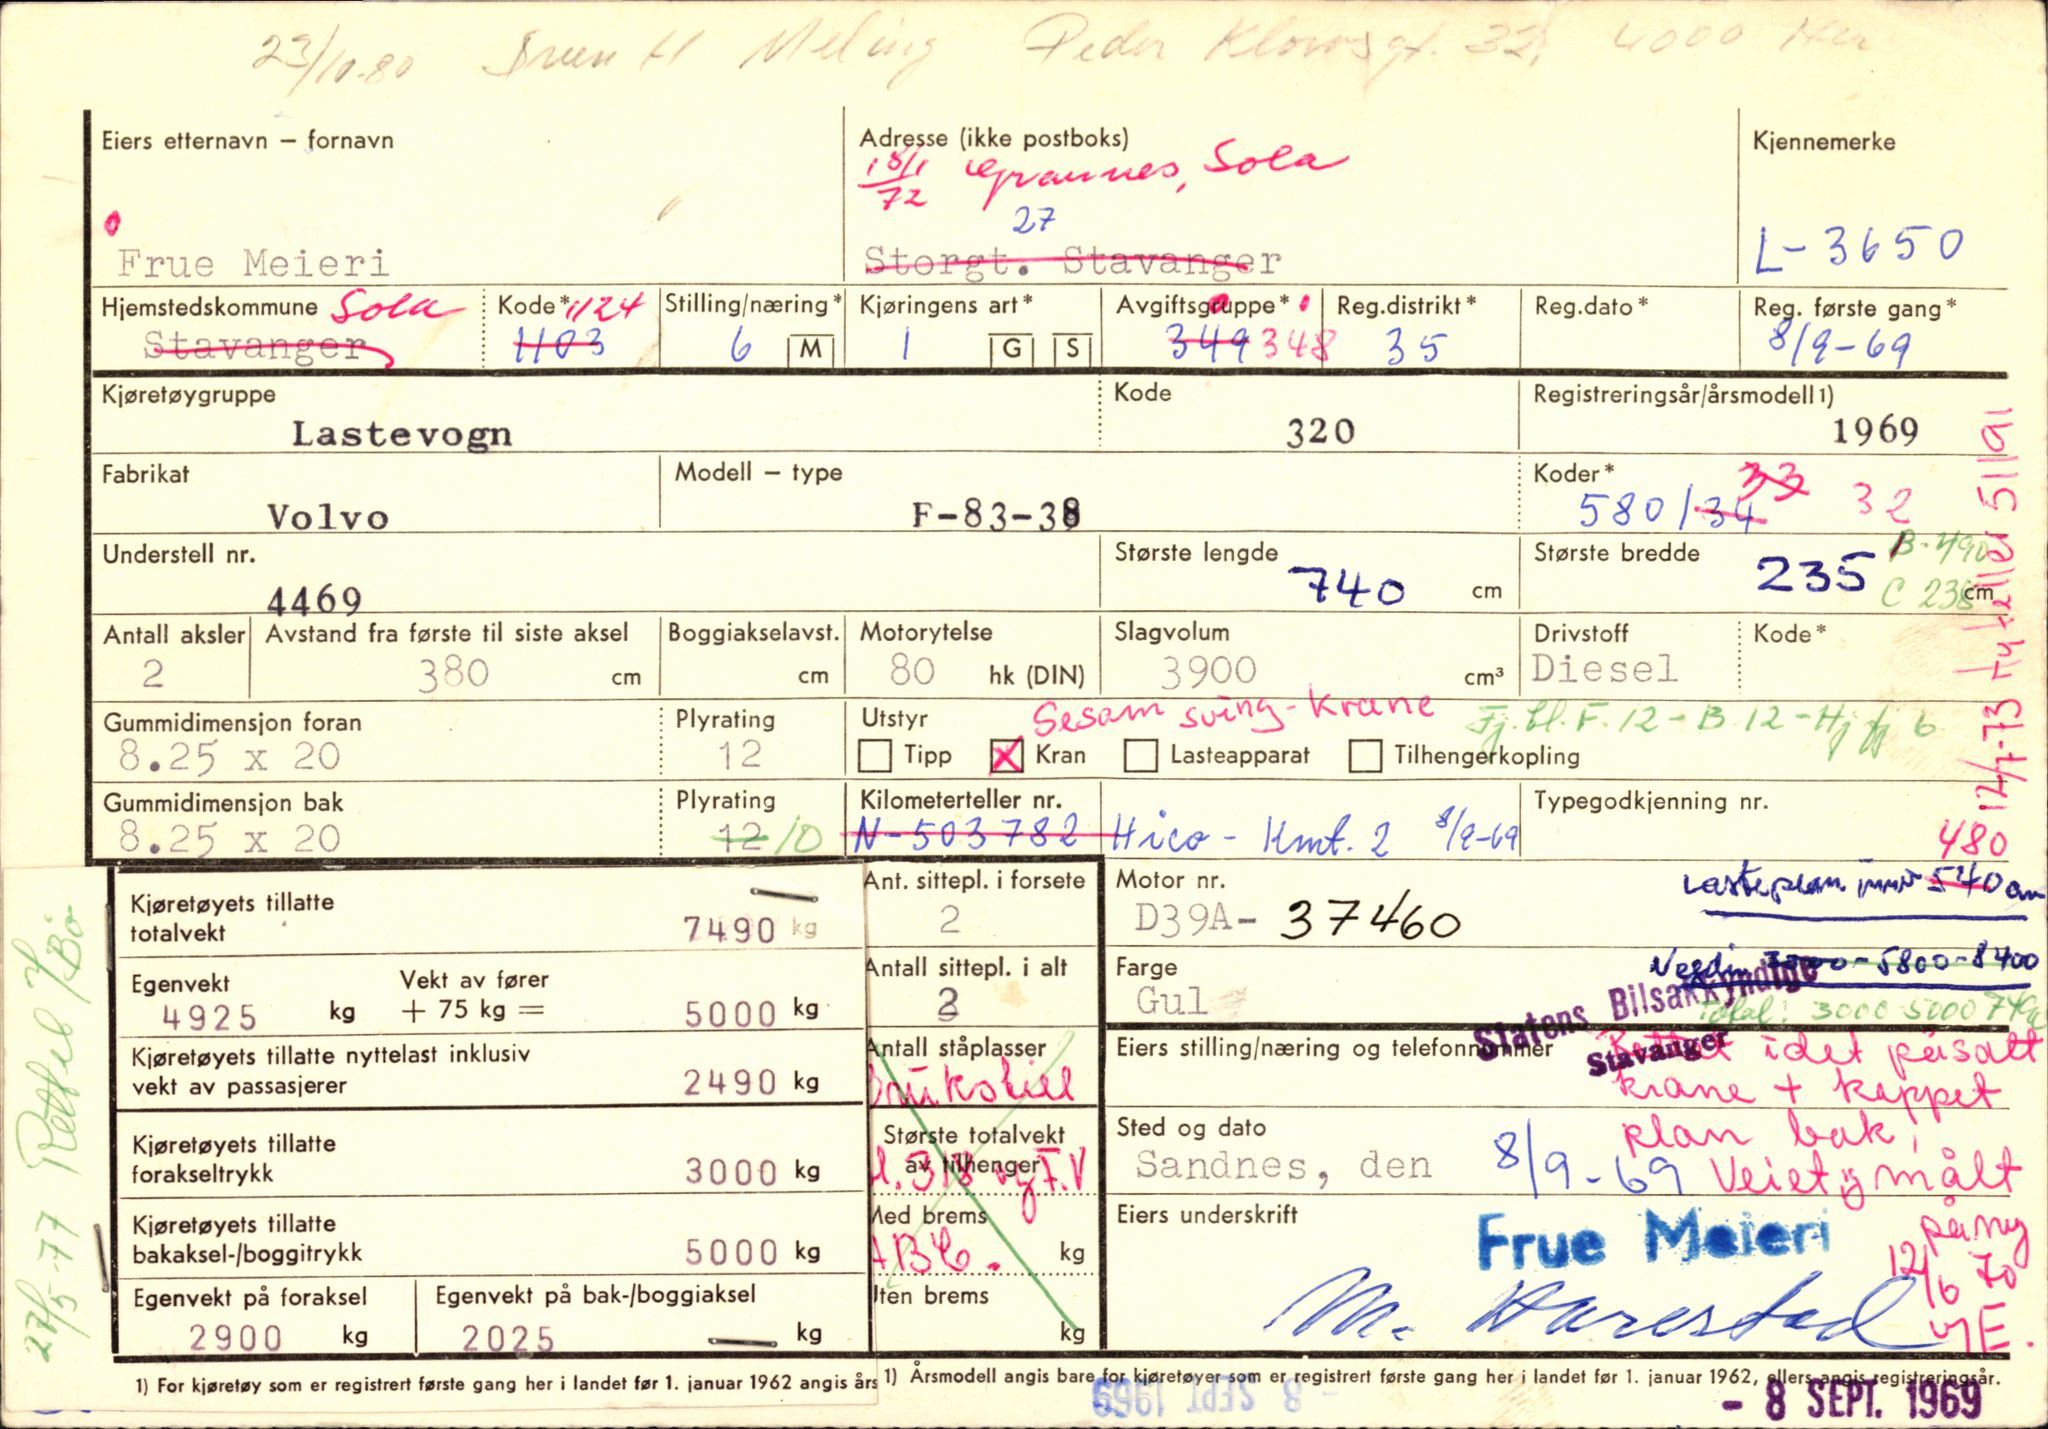 23/10.80 Meling Peder Klowsgt. 32, 4000
Eiers etternavn – fornavn
Frue Meieri
Adresse (ikke postboks)
18/1 72 Grannes, Sola
27
Storgt. Stavanger
Kjennemerke
L-3650
Hjemstedskommune Sola
Stavanger
Kode* 1124
1103
Stilling/næring*
6 M
Kjøringens art*
1 G S
Avgiftsgruppe*
349 348
Reg.distrikt*
35
Reg.dato*
Reg. første gang*
8/9-69
Kjøretøygruppe
Lastevogn
Kode
320
Registreringsår/årsmodell 1)
1969
Fabrikat
Volvo
Modell – type
F-83-38
Koder*
33
580/34 32
Understell nr.
4469
Største lengde
740 cm
Største bredde
235 cm
B-490
C 235
Antall aksler
2
Avstand fra første til siste aksel
380 cm
Boggiakselavst.
cm
Motorytelse
80 hk (DIN)
Slagvolum
3900 cm³
Drivstoff
Diesel
Kode*
Gummidimensjon foran
8.25 x 20
Plyrating
12
Utstyr Sesam sving-krane
Tipp Kran Lasteapparat Tilhengerkopling
Fj.bl. F. 12 - B. 12 - Hj fj 6
12/7-73 Ny teller 51191
Gummidimensjon bak
8.25 x 20
Plyrating
12 10
Kilometerteller nr.
N-503782 Hico - Kmt. 2 8/9-69
Typegodkjenning nr.
480
Lasteplan innv 540 cm
Kjøretøyets tillatte
totalvekt 7490 kg
Egenvekt
4925 kg
Vekt av fører
+ 75 kg = 5000 kg
Kjøretøyets tillatte nyttelast inklusiv
vekt av passasjerer 2490 kg
Kjøretøyets tillatte
forakseltrykk 3000 kg
Kjøretøyets tillatte
bakaksel-/boggitrykk 5000 kg
Egenvekt på foraksel
2900 kg
Egenvekt på bak-/boggiaksel
2025 kg
1) For kjøretøy som er registrert første gang her i landet før 1. januar 1962 angis års
23/5-77 Rettel Bø
Ant. sittepl. i forsete
2
Antall sittepl. i alt
3
Antall ståplasser
Største totalvekt
av tilhenger
Med brems
kg
Uten brems
kg
Motor nr.
D39A- 37460
Farge
Gul
Vegdir. 3000-5800-8400
Total: 3000 5000 7490
Statens Bilsakkyndige
Stavanger
Eiers stilling/næring og telefonnummer
Rettet idet påsatt
krane + kappet
plan bak,
Veiet og målt
på ny
12/6 70
Sted og dato
Sandnes, den 8/9-69
Eiers underskrift
Frue Meieri
M. Harestad
1) Årsmodell angis bare for kjøretøyer som er registrert første gang her i landet før 1. januar 1962, ellers angis registreringsår.
- 8 SEPT. 1969
- 8 SEPT 1969